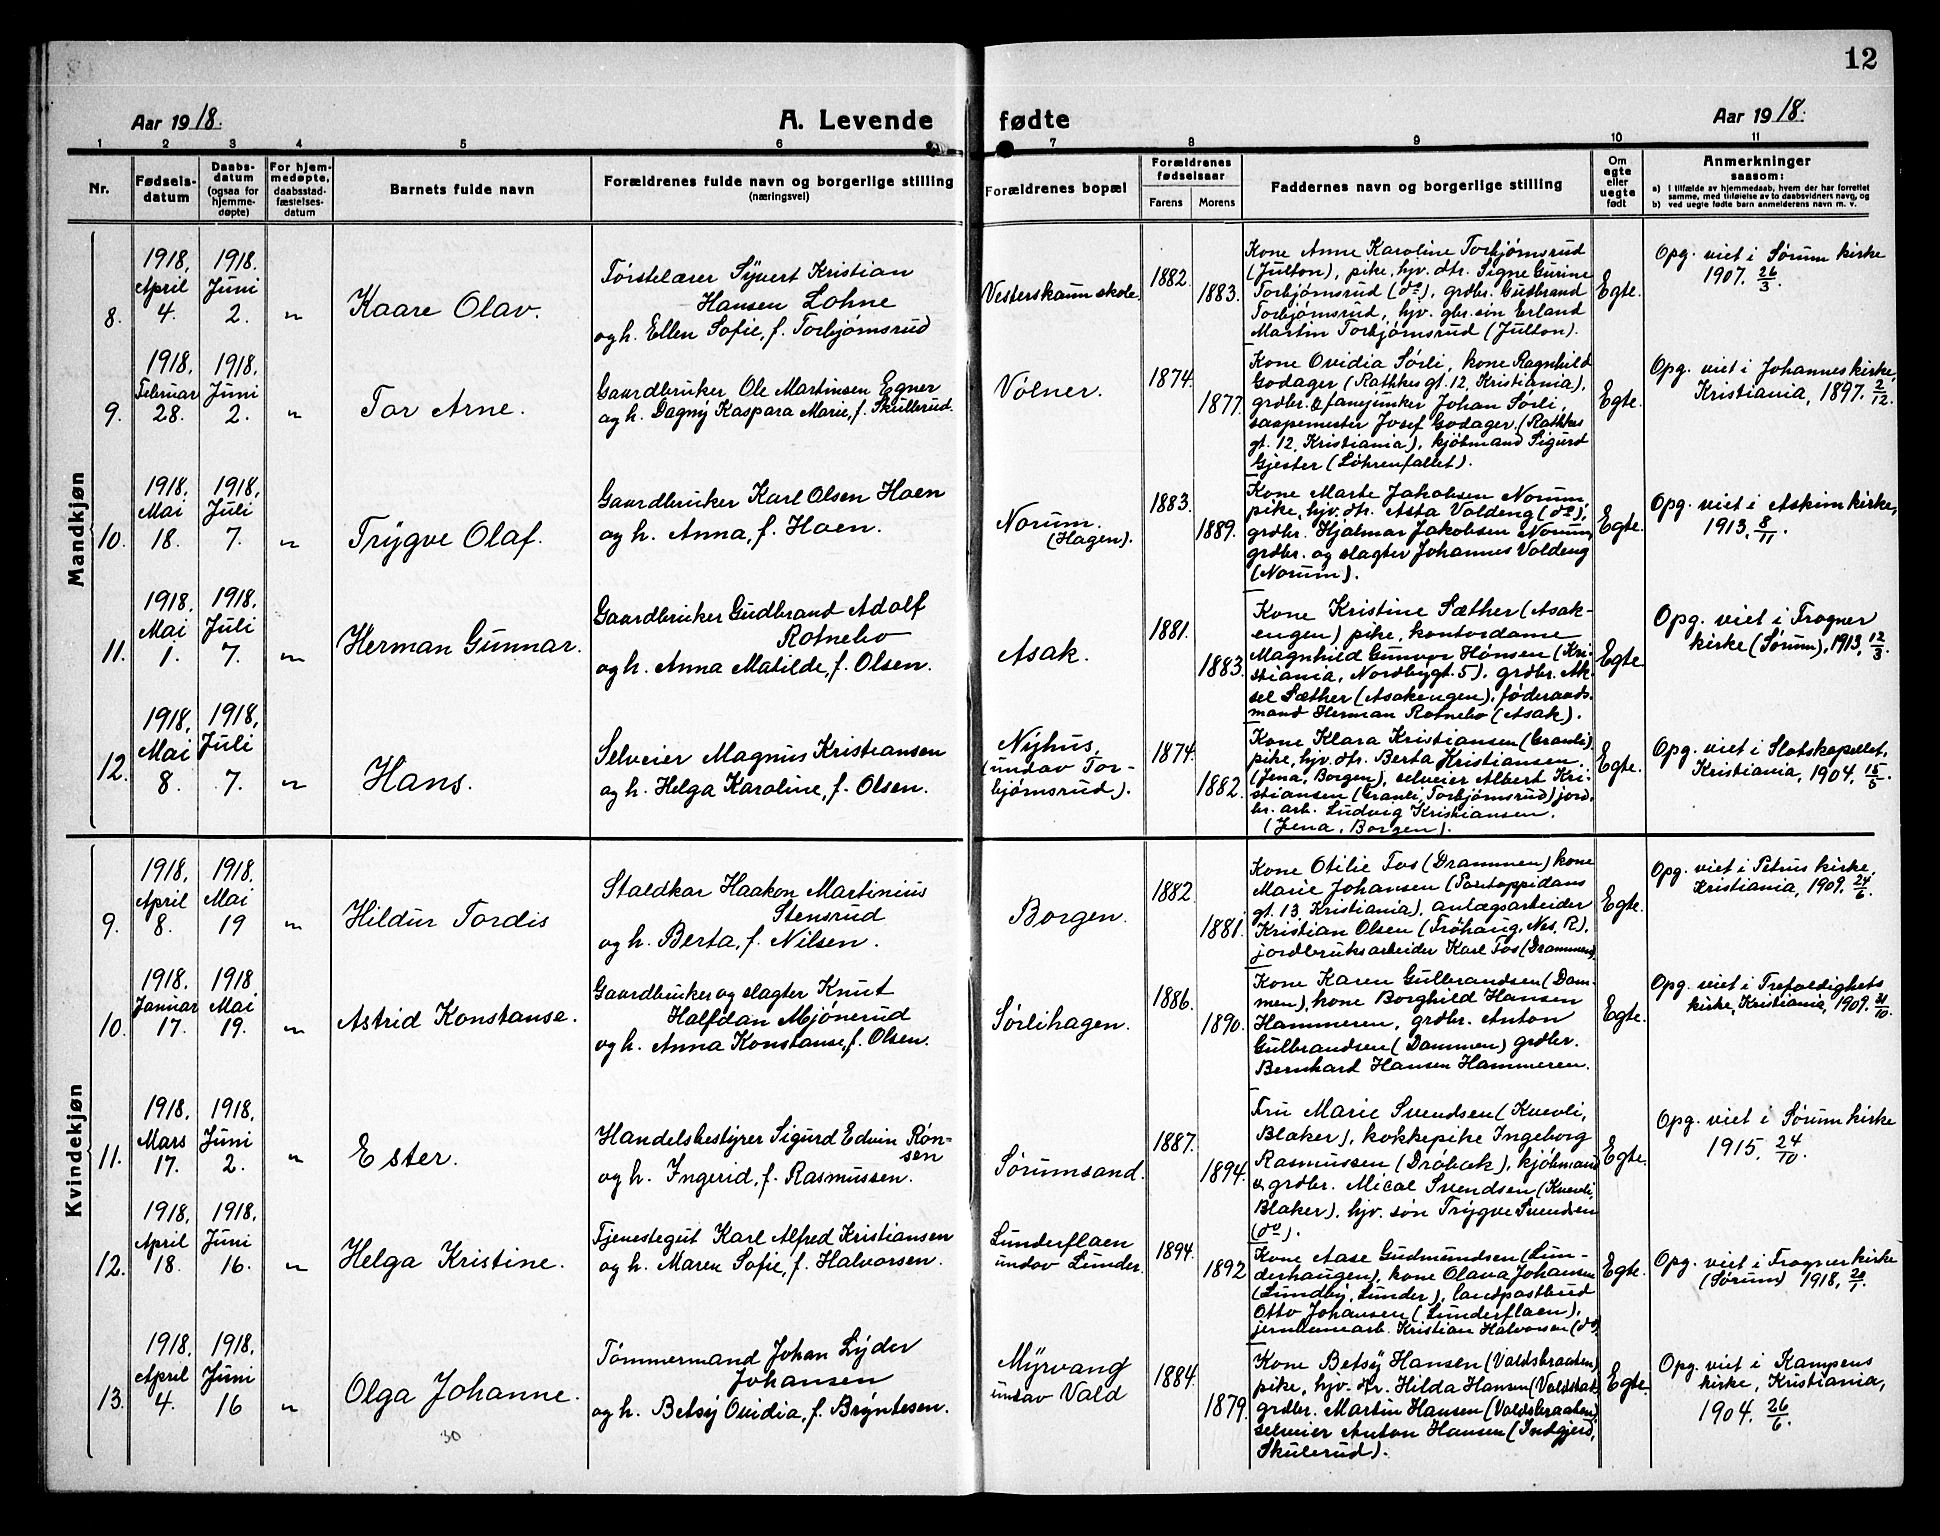 12
Aar 1918.
A. Levende fødte
Aar 1918.
1 2 3 4 5 6 7 8 9 10 11
Nr.
Fødsels-
datum
Daabs-
datum
(ogsaa for
hjemme-
døpte)
For hjem-
medøpte,
daabsstad-
fæstelses-
datum
Barnets fulde navn
Forældrenes fulde navn og borgerlige stilling
(næringsvei)
Forældrenes bopæl
Forældrenes
fødselsaar
Farens Morens
Faddernes navn og borgerlige stilling
Om
egte
eller
uegte
født
Anmerkninger
saasom:
a) I tilfælde av hjemmedaab, hvem der har forrettet
samme, med tilføielse av to daabsvidners navn, og
b) ved uegte fødte barn anmelderens navn m. v.
Mandkjøn
8.
1918.
April
4.
1918.
Juni
2.
"
Kaare Olav.
Førstelærer Syvert Kristian
Hansen Lohne
og h. Ellen Sofie, f. Torbjørnsrud
Vesterskaun skole.
1882.
1883.
Kone Anne Karoline Torbjørnsrud
(Julton), pike, hjv. dtr. Signe Gurine
Torbjørnsrud (do), grdbr. Gudbrand
Torbjørnsrud, hjv. gbr. søn Erland
Martin Torbjørnsrud (Julton).
Egte.
Opg. viet i Sørum kirke
1907. 26/3.
9.
1918.
Februar
28.
1918.
Juni
2.
"
Tor Arne.
Gaardbruker Ole Martinsen Egner
og h. Dagny Kaspara Marie, f. Skullerud.
Vølner.
1874.
1877.
Kone Ovidia Sørli, kone Ragnhild
Godager (Rathkes gt. 12, Kristiania),
grdbr. & fanejunker Johan Sørli,
saapemester Josef Godager (Rathkes
gt. 12, Kristiania), kjøbmand Sigurd
Gjester (Løhrenfallet).
Egte.
Opg. viet i Johannes kirke,
Kristiania, 1897. 2/12.
10.
1918.
Mai
18.
1918.
Juli
7.
"
Trygve Olaf.
Gaardbruker Karl Olsen Haen
og h. Anna, f. Haen.
Norum.
(Hagen).
1883.
1889.
Kone Marte Jakobsen Norum,
pike, hjv. dtr. Asta Voldeng (do),
grdbr. Hjalmar Jakobsen Norum,
grdbr. og slagter Johannes Voldeng
(Norum).
Egte.
Opg. viet i Askim kirke,
1913. 8/11.
11.
1918.
Mai
1.
1918.
Juli
7.
"
Herman Gunnar.
Gaardbruker Gudbrand Adolf
Rotnebo
og h. Anna Matilde, f. Olsen.
Asak.
1881.
1883.
Kone Kristine Sæther (Asak-
engen) pike, kontordame
Magnhild Gunvor Hansen (Kri-
stiania, Nordbygt. 5), grdbr. Ak-
sel Sæther (Asakengen), føderaads-
mand Herman Rotnebo (Asak).
Egte.
Opg. viet i Frogner
kirke (Sørum), 1913, 12/3.
12.
1918.
Mai
8.
1918.
Juli
7.
"
Hans.
Selveier Magnus Kristiansen
og h. Helga Karoline, f. Olsen.
Nyhus,
(undav Tor-
bjørnsrud).
1874.
1882.
Kone Klara Kristiansen (Granli),
pike, hjv. dtr. Berta Kristiansen
(Jena, Borgen), selveier Albert Kri-
stiansen (Granli, Torbjørnsrud) jord-
br. arb. Ludvig Kristiansen.
(Jena, Borgen).
Egte.
Opg. viet i Slotskapellet,
Kristiania, 1904, 15/5.
Kvindekjøn
9.
1918.
April
8.
1918.
Mai
19
"
Hildur Tordis
Staldkar Haakon Martinius
Stensrud
og h. Berta, f. Nilsen.
Borgen.
1882.
1881.
Kone Otilie Fos (Drammen) kone
Marie Johansen (Pontoppidans
gt. 13, Kristiania), anlægsarbeider
Kristian Olsen (Frøhaug, Nes, R.),
jordbruksarbeider Karl Fos (Drammen)
Egte.
Opg. viet i Petrus kirke,
Kristiania, 1909, 24/6.
10.
1918.
Januar
17.
1918.
Mai
19.
"
Astrid Konstanse.
Gaardbruker og slagter Knut
Halfdan Mjønerud
og h. Anna Konstanse, f. Olsen.
Sørlihagen.
1886.
1890.
Kone Karen Gulbrandsen (Dam-
men), kone Borghild Hansen
Hammeren, grdbr. Anton
Gulbrandsen (Dammen) grdbr.
Bernhard Hansen Hammeren.
Egte.
Opg. viet i Trefoldighets
kirke, Kristiania, 1909. 31/10.
11.
1918.
Mars
17.
1918.
Juni
2.
"
Ester.
Handelsbestyrer Sigurd Edvin Røn-
sen
og h. Ingerid, f. Rasmussen.
Sørumsand.
1887.
1894.
Fru Marie Svendsen (Kuevli,
Blaker), kokkepike Ingeborg
Rasmussen (Drøbak), kjøbmand
& grdbr. Mical Svendsen (Kuevli,
Blaker), hjv. søn Trygve Svendsen
(do).
Egte.
Opg. viet i Sørum kirke
1915, 24/10.
12.
1918.
April
18.
1918.
Juni
16.
"
Helga Kristine.
Tjenestegut Karl Alfred Kristiansen
og h. Maren Sofie, f. Halvorsen.
Lunderflaen
undav Lunder.
1894.
1892
Kone Aase Gudmundsen (Lun-
derhaugen), kone Olava Johansen
(Lundby, Lunder), landpostbud
Otto Johansen (Lunderflaen),
jernbanearb. Kristian Halvorsen (do)
Egte.
Opg. viet i Frogner kirke
(Sørum) 1918, 20/1.
13.
1918.
April
4.
1918.
Juni
16
"
Olga Johanne.
Tømmermand Johan Lyder
Johansen
og h. Betsy Ovidia, f. Bryntesen.
Myrvang
undav Vald
1884.
1879.
Kone Betsy Hansen (Valdsbraaten)
pike, hjv. dtr. Hilda Hansen (Valdsbraaten)
grdbr. Martin Hansen (Valdsbraaten),
selveier Anton Hansen (Indgjerd,
Skulerud).
Egte.
Opg. viet i Kampens
kirke, Kristiania,
1904. 26/6.
30